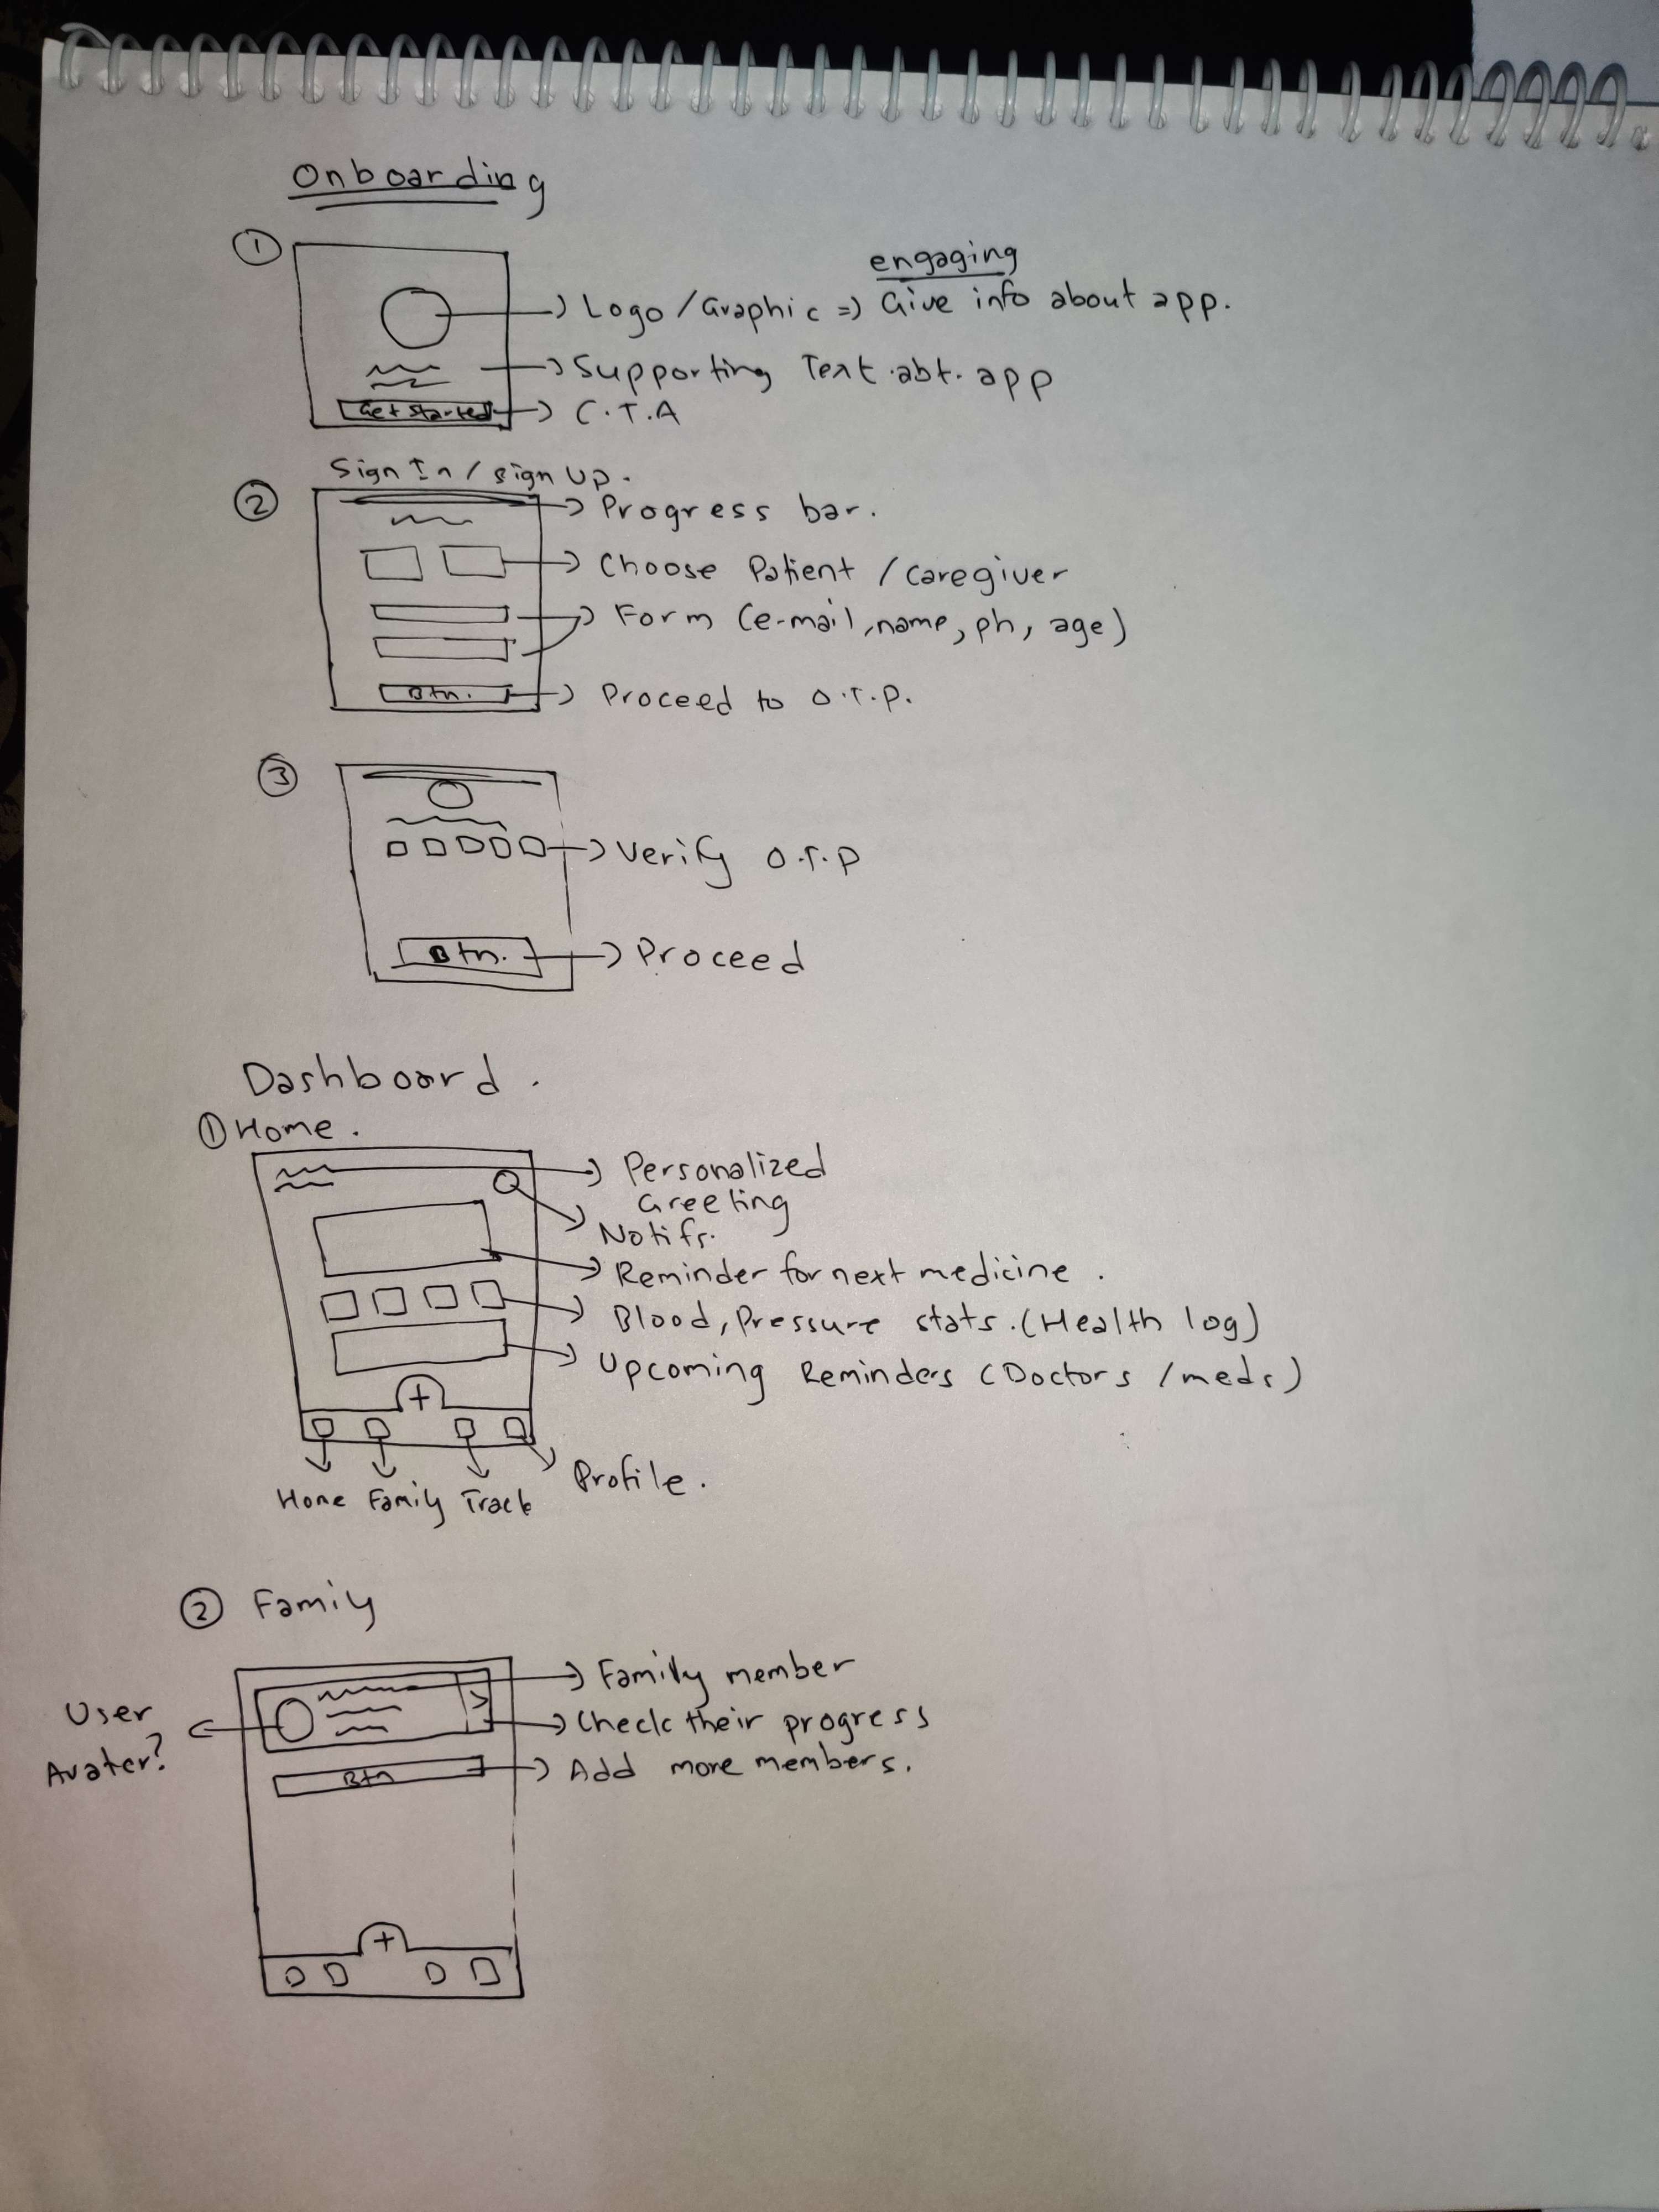 Onboarding
1
engaging
Logo / Graphic => Give info about app.
Supporting Text abt. app
Get Started
C.T.A
Sign In / Sign Up.
2
Progress bar.
Choose Patient / caregiver
Form (e-mail, name, ph, age)
Btn.
Proceed to O.T.P.
3
Verify O.T.P
Btn.
Proceed
Dashboard.
1 Home.
Personalized
Greeting
Notifs.
Reminder for next medicine.
Blood, Pressure stats. (Health log)
Upcoming Reminders (Doctors / meds)
+
Home Family Track Profile.
2 Family
Family member
User
Avater?
Check their progress
Btn
Add more members.
+